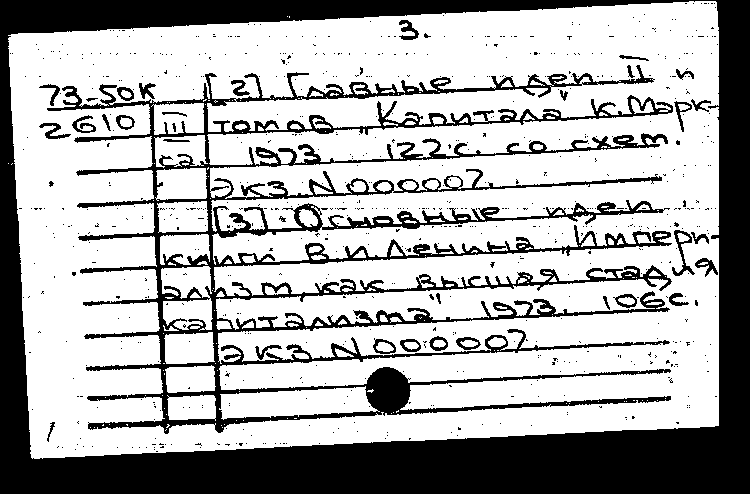 3.
73-50к [2]. Главные идеи II и
2610 III томов „Капитала" К.Марк-
са. 1973. 122с. со схем.
Экз. N000007.
[3]. Основные идеи
книги В.И.Ленина „Импери-
ализм, как высшая стадия
капитализма". 1973. 106с.
Экз. N000007.